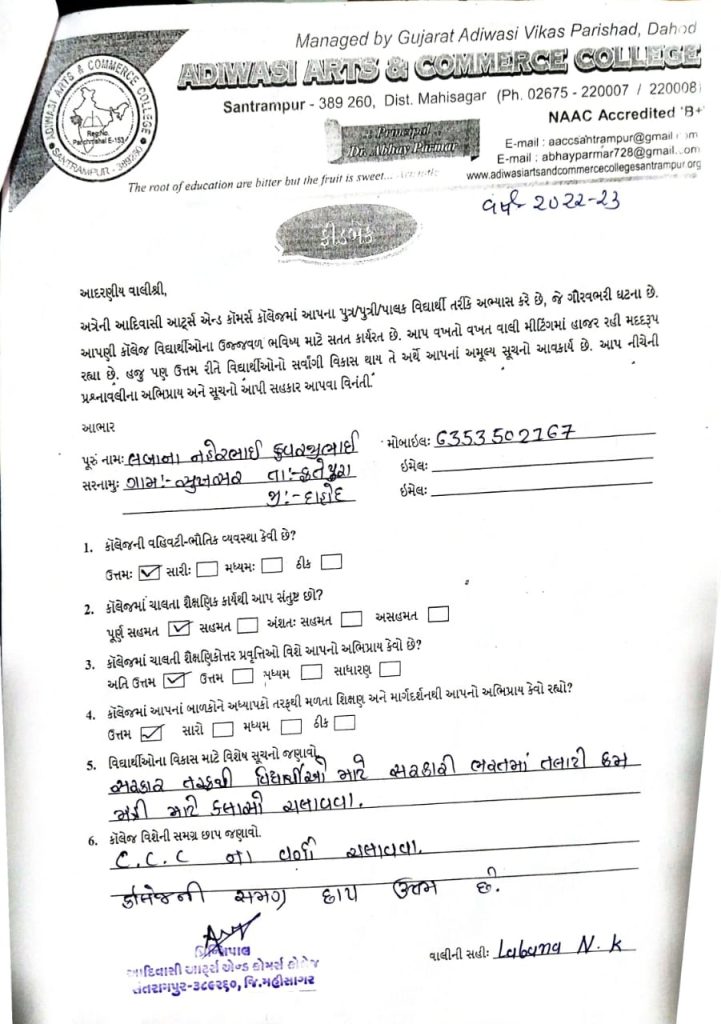 Managed by Gujarat Adiwasi Vikas Parishad, Dahod
ADIWASI ARTS & COMMERCE COLLEGE
Santrampur - 389 260, Dist. Mahisagar (Ph. 02675 - 220007 / 220008)
NAAC Accredited 'B+'
ADIWASI ARTS & COMMERCE COLLEGE
Reg.No.
Panchmahal E-153
SANTRAMPUR - 389260
:: Principal ::
Dr. Abhay Parmar
E-mail : aaccsantrampur@gmail.com
E-mail : abhayparmar728@gmail.com
www.adiwasiartsandcommercecollegesantrampur.org
The root of education are bitter but the fruit is sweet...
વર્ષ 2022-23
ફીડબેક
આદરણીય વાલીશ્રી,
અત્રેની આદિવાસી આર્ટ્સ એન્ડ કૉમર્સ કૉલેજમાં આપના પુત્ર/પુત્રી/પાલક વિદ્યાર્થી તરીકે અભ્યાસ કરે છે, જે ગૌરવભરી ઘટના છે.
આપણી કૉલેજ વિદ્યાર્થીઓના ઉજ્જવળ ભવિષ્ય માટે સતત કાર્યરત છે. આપ વખતો વખત વાલી મીટિંગમાં હાજર રહી મદદરૂપ
રહ્યા છે. હજુ પણ ઉત્તમ રીતે વિદ્યાર્થીઓનો સર્વાંગી વિકાસ થાય તે અર્થે આપનાં અમૂલ્ય સૂચનો આવકાર્ય છે. આપ નીચેની
પ્રશ્નાવલીના અભિપ્રાય અને સૂચનો આપી સહકાર આપવા વિનંતી.
આભાર
પૂરું નામ: લબાના નહેરભાઈ કુવરજીભાઈ મોબાઇલ: 6353502767
સરનામુ: ગામ:- સુખસર તા:- ફતેપુરા ઇમેલ:
જી:- દાહોદ ઇમેલ:
1. કૉલેજની વહિવટી-ભૌતિક વ્યવસ્થા કેવી છે?
ઉત્તમ: સારી: મધ્યમ: ઠીક
2. કૉલેજમાં ચાલતા શૈક્ષણિક કાર્યથી આપ સંતુષ્ટ છો?
પૂર્ણ સહમત સહમત અંશતઃ સહમત અસહમત
3. કૉલેજમાં ચાલતી શૈક્ષણિકોત્તર પ્રવૃત્તિઓ વિશે આપનો અભિપ્રાય કેવો છે?
અતિ ઉત્તમ ઉત્તમ મધ્યમ સાધારણ
4. કૉલેજમાં આપનાં બાળકોને અધ્યાપકો તરફથી મળતા શિક્ષણ અને માર્ગદર્શનથી આપનો અભિપ્રાય કેવો રહ્યો?
ઉત્તમ સારો મધ્યમ ઠીક
5. વિદ્યાર્થીઓના વિકાસ માટે વિશેષ સૂચનો જણાવો.
સરકાર તરફથી વિદ્યાર્થીઓ માટે સરકારી ભરતમાં તલાટી કમ
મંત્રી માટે કલાસો ચલાવવા.
6. કૉલેજ વિશેની સમગ્ર છાપ જણાવો.
C.C.C ના વર્ગો ચલાવવા.
કોલેજની સમગ્ર છાપ ઉત્તમ છે.
પ્રિન્સિપાલ
આદિવાસી આર્ટ્સ એન્ડ કોમર્સ કોલેજ
સંતરામપુર-૩૮૯૨૬૦, જિ.મહીસાગર
વાલીની સહી: Labana N.K